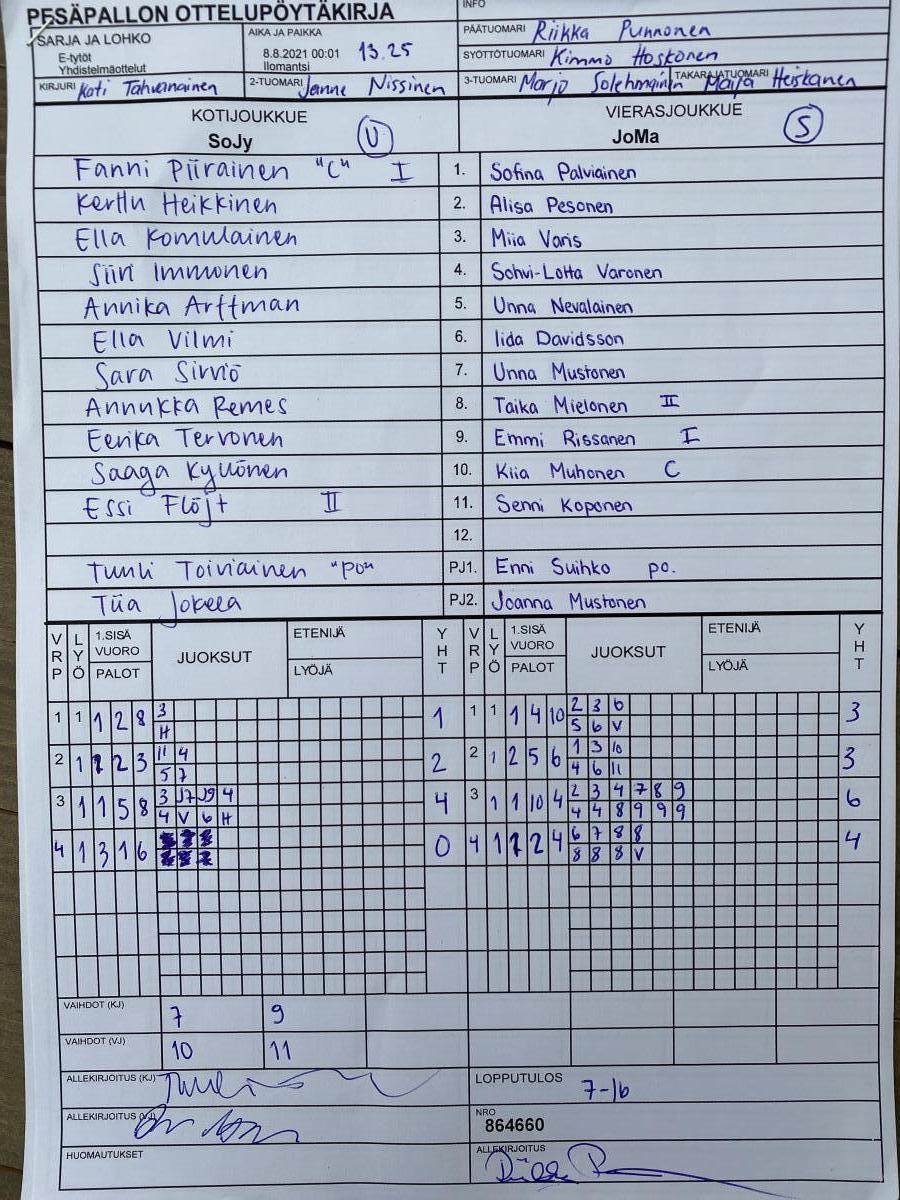 PESÄPALLON OTTELUPÖYTÄKIRJA
INFO
SARJA JA LOHKO
E-tytöt
Yhdistelmäottelut
AIKA JA PAIKKA
8.8.2021 00:01 13.25
Ilomantsi
PÄÄTUOMARI Riikka Punnonen
SYÖTTÖTUOMARI Kimmo Hoskonen
KIRJURI Kati Tahvanainen
2-TUOMARI Janne Nissinen
3-TUOMARI Marjo Solehmainen
TAKARAJATUOMARI Maija Heiskanen
KOTIJOUKKUE
SoJy U
VIERASJOUKKUE
JoMa S
Fanni Piirainen "C" I 1. Sofina Palviainen
Kerttu Heikkinen 2. Alisa Pesonen
Ella Komulainen 3. Miia Varis
Siiri Immonen 4. Sohvi-Lotta Varonen
Annika Arffman 5. Unna Nevalainen
Ella Vilmi 6. Iida Davidsson
Sara Sirviö 7. Unna Mustonen
Annukka Remes 8. Taika Mielonen II
Eerika Tervonen 9. Emmi Rissanen I
Saaga Kyllönen 10. Kiia Muhonen C
Essi Flöjt II 11. Senni Koponen
12.
Tuuli Toiviainen "po" PJ1. Enni Suihko po.
Tiia Jokela PJ2. Joanna Mustonen
VRP LYÖ 1.SISÄ VUORO PALOT JUOKSUT ETENIJÄ LYÖJÄ YHT VRP LYÖ 1.SISÄ VUORO PALOT JUOKSUT ETENIJÄ LYÖJÄ YHT
1 1 1 2 8 3 1 1 1 1 4 10 2 3 6 3
H 5 6 V
2 1 1 2 3 11 4 2 2 1 2 5 6 1 3 10 3
5 7 4 6 11
3 1 1 5 8 3 J7 J9 4 4 3 1 1 10 4 2 3 4 7 8 9 6
4 V 6 H 4 4 8 9 9 9
4 1 3 1 6 0 4 1 1 2 4 6 7 8 8 4
8 8 8 V
VAIHDOT (KJ) 7 9
VAIHDOT (VJ) 10 11
ALLEKIRJOITUS (KJ)
LOPPUTULOS 7-16
ALLEKIRJOITUS (VJ)
NRO
864660
HUOMAUTUKSET
ALLEKIRJOITUS